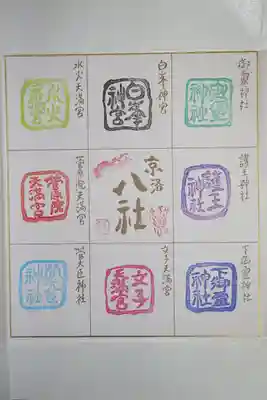 御霊神社
御霊神社
護王神社
護王神社
下御霊神社
下御霊神社
白峯神宮
白峯神宮
京洛
八社
文子天満宮
文子天満宮
水火天満宮
水火天満宮
菅原院天満宮
菅原院天満宮
菅大臣神社
菅大臣神社